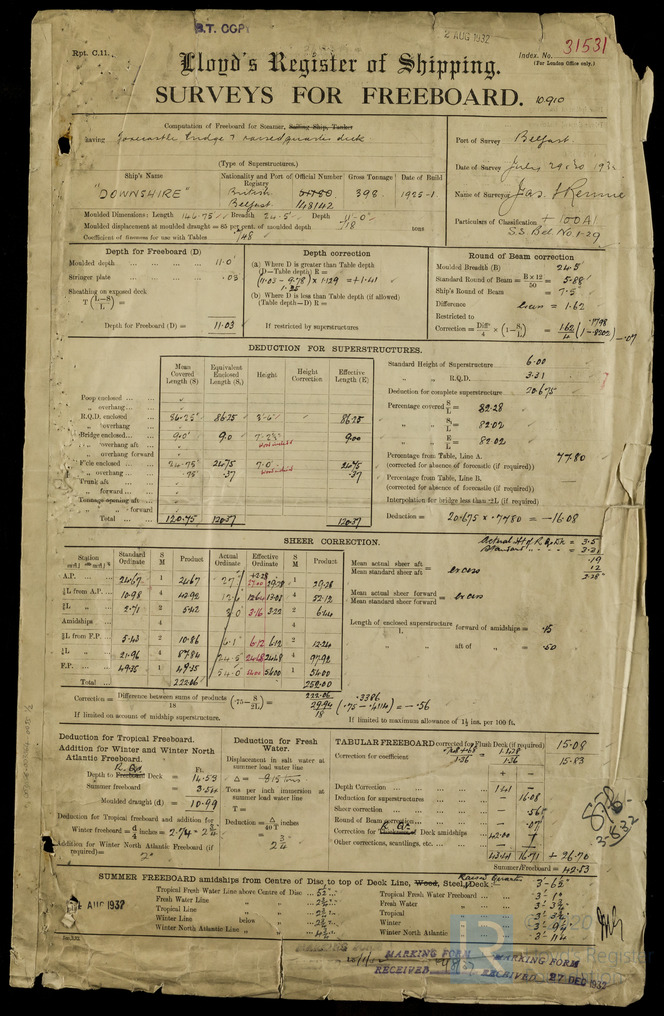 B.T. COPY
2 AUG 1932
Rpt. C.11.
Index. No. 31531
(For London Office only.)
Lloyd's Register of Shipping.
SURVEYS FOR FREEBOARD.
Computation of Freeboard for Steamer, Sailing Ship, Tanker
having forecastle bridge & raised quarter deck
(Type of Superstructures.)
Port of Survey Belfast
Date of Survey July 29 & 30 1932
Name of Surveyor Jas. Rennie
Particulars of Classification + 100A1
S.S. Bel. No 1-29
Ship's Name
Nationality and Port of Registry
Official Number
Gross Tonnage
Date of Build
"DOWNSHIRE"
British
Belfast
148142
398
1925-1
Moulded Dimensions: Length 146.75 Breadth 24.5 Depth 11.0
Moulded displacement at moulded draught = 85 per cent. of moulded depth tons
Coefficient of fineness for use with Tables .78
Depth for Freeboard (D)
Moulded depth 11.0
Stringer plate .03
Sheathing on exposed deck
T (L-S / L) =
Depth for Freeboard (D) = 11.03
Depth correction
(a) Where D is greater than Table depth
(D—Table depth) R =
(11.03 - 9.78) × 1.129 = + 1.41
1.25
(b) Where D is less than Table depth (if allowed)
(Table depth—D) R =
If restricted by superstructures
Round of Beam correction
Moulded Breadth (B) 24.5
Standard Round of Beam = B × 12 / 50 = 5.88
Ship's Round of Beam = 7.5
Difference 1.62
Restricted to
Correction = Diff / 4 × (1 - S₁ / L) = 1.62 / 4 (1 - .8202) = -.07
.1798
DEDUCTION FOR SUPERSTRUCTURES.
Mean Covered Length (S)
Equivalent Enclosed Length (S₁)
Height
Height Correction
Effective Length (E)
Poop enclosed
„ overhang
R.Q.D. enclosed 86.25 86.25 3'.6" 86.25
„ overhang
Bridge enclosed 9.0 9.0 7.25 9.00
„ overhang aft
„ overhang forward
F'cle enclosed 24.75 24.75 7.0 24.75
„ overhang .75 .37 .37
Trunk aft
„ forward
Tonnage opening aft
„ „ forward
Total 120.75 120.37 120.37
Standard Height of Superstructure 6.00
„ „ R.Q.D. 3.31
Deduction for complete superstructure 20.675
Percentage covered S/L = 82.28
„ „ S₁/L = 82.02
„ „ E/L = 82.02
Percentage from Table, Line A. 77.80
(corrected for absence of forecastle (if required))
Percentage from Table, Line B.
(corrected for absence of forecastle (if required))
Interpolation for bridge less than ·2L (if required)
Deduction = 20.675 × .7780 = -16.08
SHEER CORRECTION.
Actual Ht of R.Q.Dk = 3.5
Standard „ „ = 3.31
.19
12
2.28
Station
Standard Ordinate
S M
Product
Actual Ordinate
Effective Ordinate
S M
Product
A.P. 24.67 1 24.67 27 29.28 1 29.28
⅙L from A.P. 10.98 4 43.92 4 52.12
⅓L „ 2.71 2 5.42 3.0 3.16 3.22 2 6.44
Amidships 4 4
⅓L from F.P. 5.43 2 10.86 6.1 6.12 6.12 2 12.24
⅙L „ 21.96 4 87.84 24.5 24.48 24.48 4 97.92
F.P. 49.35 1 49.35 54.0 54.00 54.00 1 54.00
Total 222.06 252.00
Mean actual sheer aft / Mean standard sheer aft = excess
Mean actual sheer forward / Mean standard sheer forward = excess
Length of enclosed superstructure / L forward of amidships = .15
„ „ aft of „ = .50
Correction = Difference between sums of products / 18 (·75 - S / 2L) = 29.94 / 18 (.75 - .4114) = -.56
222.06
.3386
If limited on account of midship superstructure.
If limited to maximum allowance of 1½ ins. per 100 ft.
Deduction for Tropical Freeboard.
Addition for Winter and Winter North Atlantic Freeboard.
Ft.
Depth to Freeboard Deck = 14.53
Summer freeboard = 3.54
Moulded draught (d) = 10.99
Deduction for Tropical freeboard and addition for
Winter freeboard = d/4 inches = 2.74 = 2¾"
Addition for Winter North Atlantic Freeboard (if required) = 2"
Deduction for Fresh Water.
Displacement in salt water at summer load water line
Δ = 815 tons
Tons per inch immersion at summer load water line
T =
Deduction = Δ / 40 T inches
= 2¾
TABULAR FREEBOARD corrected for Flush Deck (if required) 15.08
Correction for coefficient .78+.68 / 1.36 = 15.83
+ -
Depth Correction 1.41 -
Deduction for superstructures - 16.08
Sheer correction - .56
Round of Beam correction - .07
Correction for R.Q. Deck amidships 42.00 -
Other corrections, scantlings, etc. - -
43.41 16.71 + 26.70
Summer Freeboard = 42.53
SUMMER FREEBOARD amidships from Centre of Disc to top of Deck Line, Wood, Steel, Deck: Raised Quarter 3'-6½"
Tropical Fresh Water Line above Centre of Disc 5½"
Fresh Water Line „ „ 2¾"
Tropical Line „ „ 2¾"
Winter Line below „ 2¾"
Winter North Atlantic Line „ „ 4¾"
Tropical Fresh Water Freeboard 3'-1"
Fresh Water „ 3'-3¾"
Tropical „ 3'-3¾"
Winter „ 3'-9¼"
Winter North Atlantic „ 3'-11¼"
AUG 1932
MARKING FORM
RECEIVED
MARKING FORM
RECEIVED 27 DEC 1932